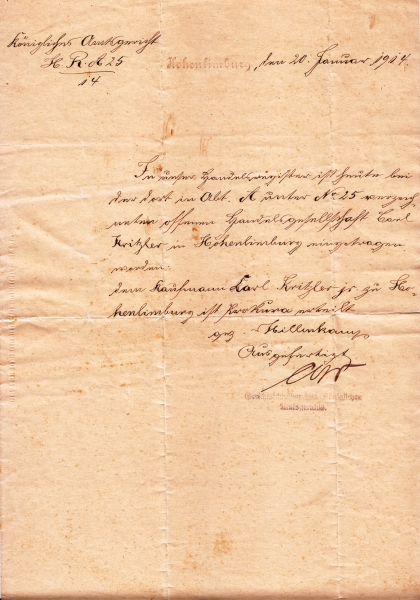 Königliches Amtsgericht
H. R. A 25
14
Hohenlimburg, den 20. Januar 1914.
In unser Handelsregister ist heute bei
der dort in Abt. A unter No 25 verzeich
neten offenen Handelsgesellschaft Carl
Kritzler in Hohenlimburg eingetragen
worden:
dem Kaufmann Karl Kritzler jr. zu Ho-
henlimburg ist Prokura erteilt
gez. Hillenkamp
Ausgefertigt
Gerichtsschreiber des Königlichen
Amtsgerichts.